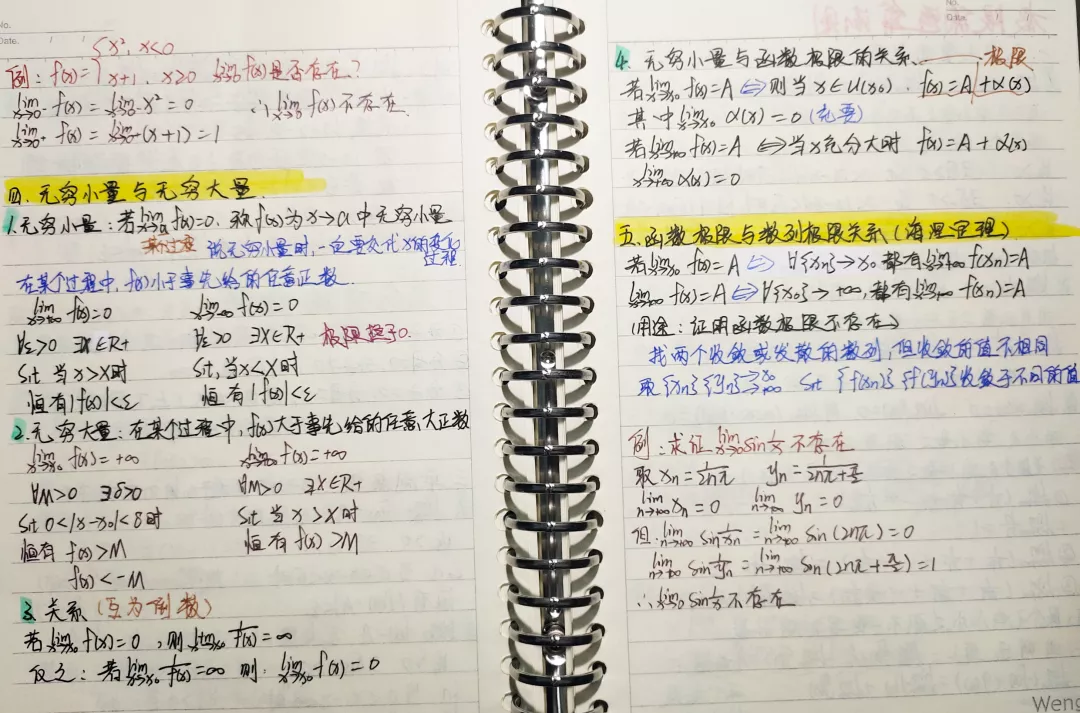 No.
Date.
例: f(x)={x², x<0
x+1, x≥0 lim x→0 f(x)是否存在?
lim x→0⁻ f(x) = lim x→0⁻ x² = 0 ∴lim x→0 f(x)不存在.
lim x→0⁺ f(x) = lim x→0⁺ (x+1) = 1
四. 无穷小量与无穷大量.
1. 无穷小量: 若lim x→a f(x)=0. 称f(x)为x→a中无穷小量
某过程 说无穷小量时, 一定要交代x的变化过程
在某个过程中, f(x)小于事先给的任意正数.
lim f(x)=0 lim f(x)=0
∀ε>0 ∃X∈R+ ∀ε>0 ∃X∈R+ 极限趋于0.
s.t 当x>X时 s.t, 当x<X时
恒有|f(x)|<ε 恒有|f(x)|<ε
2. 无穷大量: 在某个过程中, f(x)大于事先给的任意大正数
lim x→x₀ f(x)=+∞ lim f(x)=+∞
∀M>0 ∃δ>0 ∀M>0 ∃X∈R+
s.t 0<|x-x₀|<δ时 s.t 当x>X时
恒有 f(x)>M 恒有f(x)>M
f(x)<-M
3. 关系 (互为倒数)
若lim x→x₀ f(x)=0, 则lim x→x₀ 1/f(x)=∞
反之: 若lim x→x₀ 1/f(x)=∞ 则: lim x→x₀ f(x)=0
No.
Date
4. 无穷小量与函数极限的关系. 极限
若lim x→x₀ f(x)=A ⇔ 则当x∈U(x₀). f(x)=A+α(x)
其中lim x→x₀ α(x)=0 (充要)
若lim x→∞ f(x)=A ⇔当x充分大时 f(x)=A+α(x)
lim x→∞ α(x)=0
五. 函数极限与数列极限关系(海涅定理)
若lim x→x₀ f(x)=A ⇔ ∀{xn}→x₀ 都有lim n→∞ f(xn)=A
lim x→+∞ f(x)=A⇔∀{xn}→+∞, 都有lim n→∞ f(xn)=A
(用途: 证明函数极限不存在)
找两个收敛或发散的数列, 但收敛的值不相同
取{xn}{yn}→x₀ ∞ s.t {f(xn)} {f(yn)}收敛于不同的值
例: 求证lim x→0 sin 1/x 不存在
取xn=1/2nπ yn=1/(2nπ+π/2)
lim n→∞ xn=0 lim n→∞ yn=0
但: lim n→∞ sin 1/xn = lim n→∞ sin(2nπ)=0
lim n→∞ sin 1/yn = lim n→∞ sin(2nπ+π/2)=1
∴lim x→0 sin 1/x 不存在
Weng